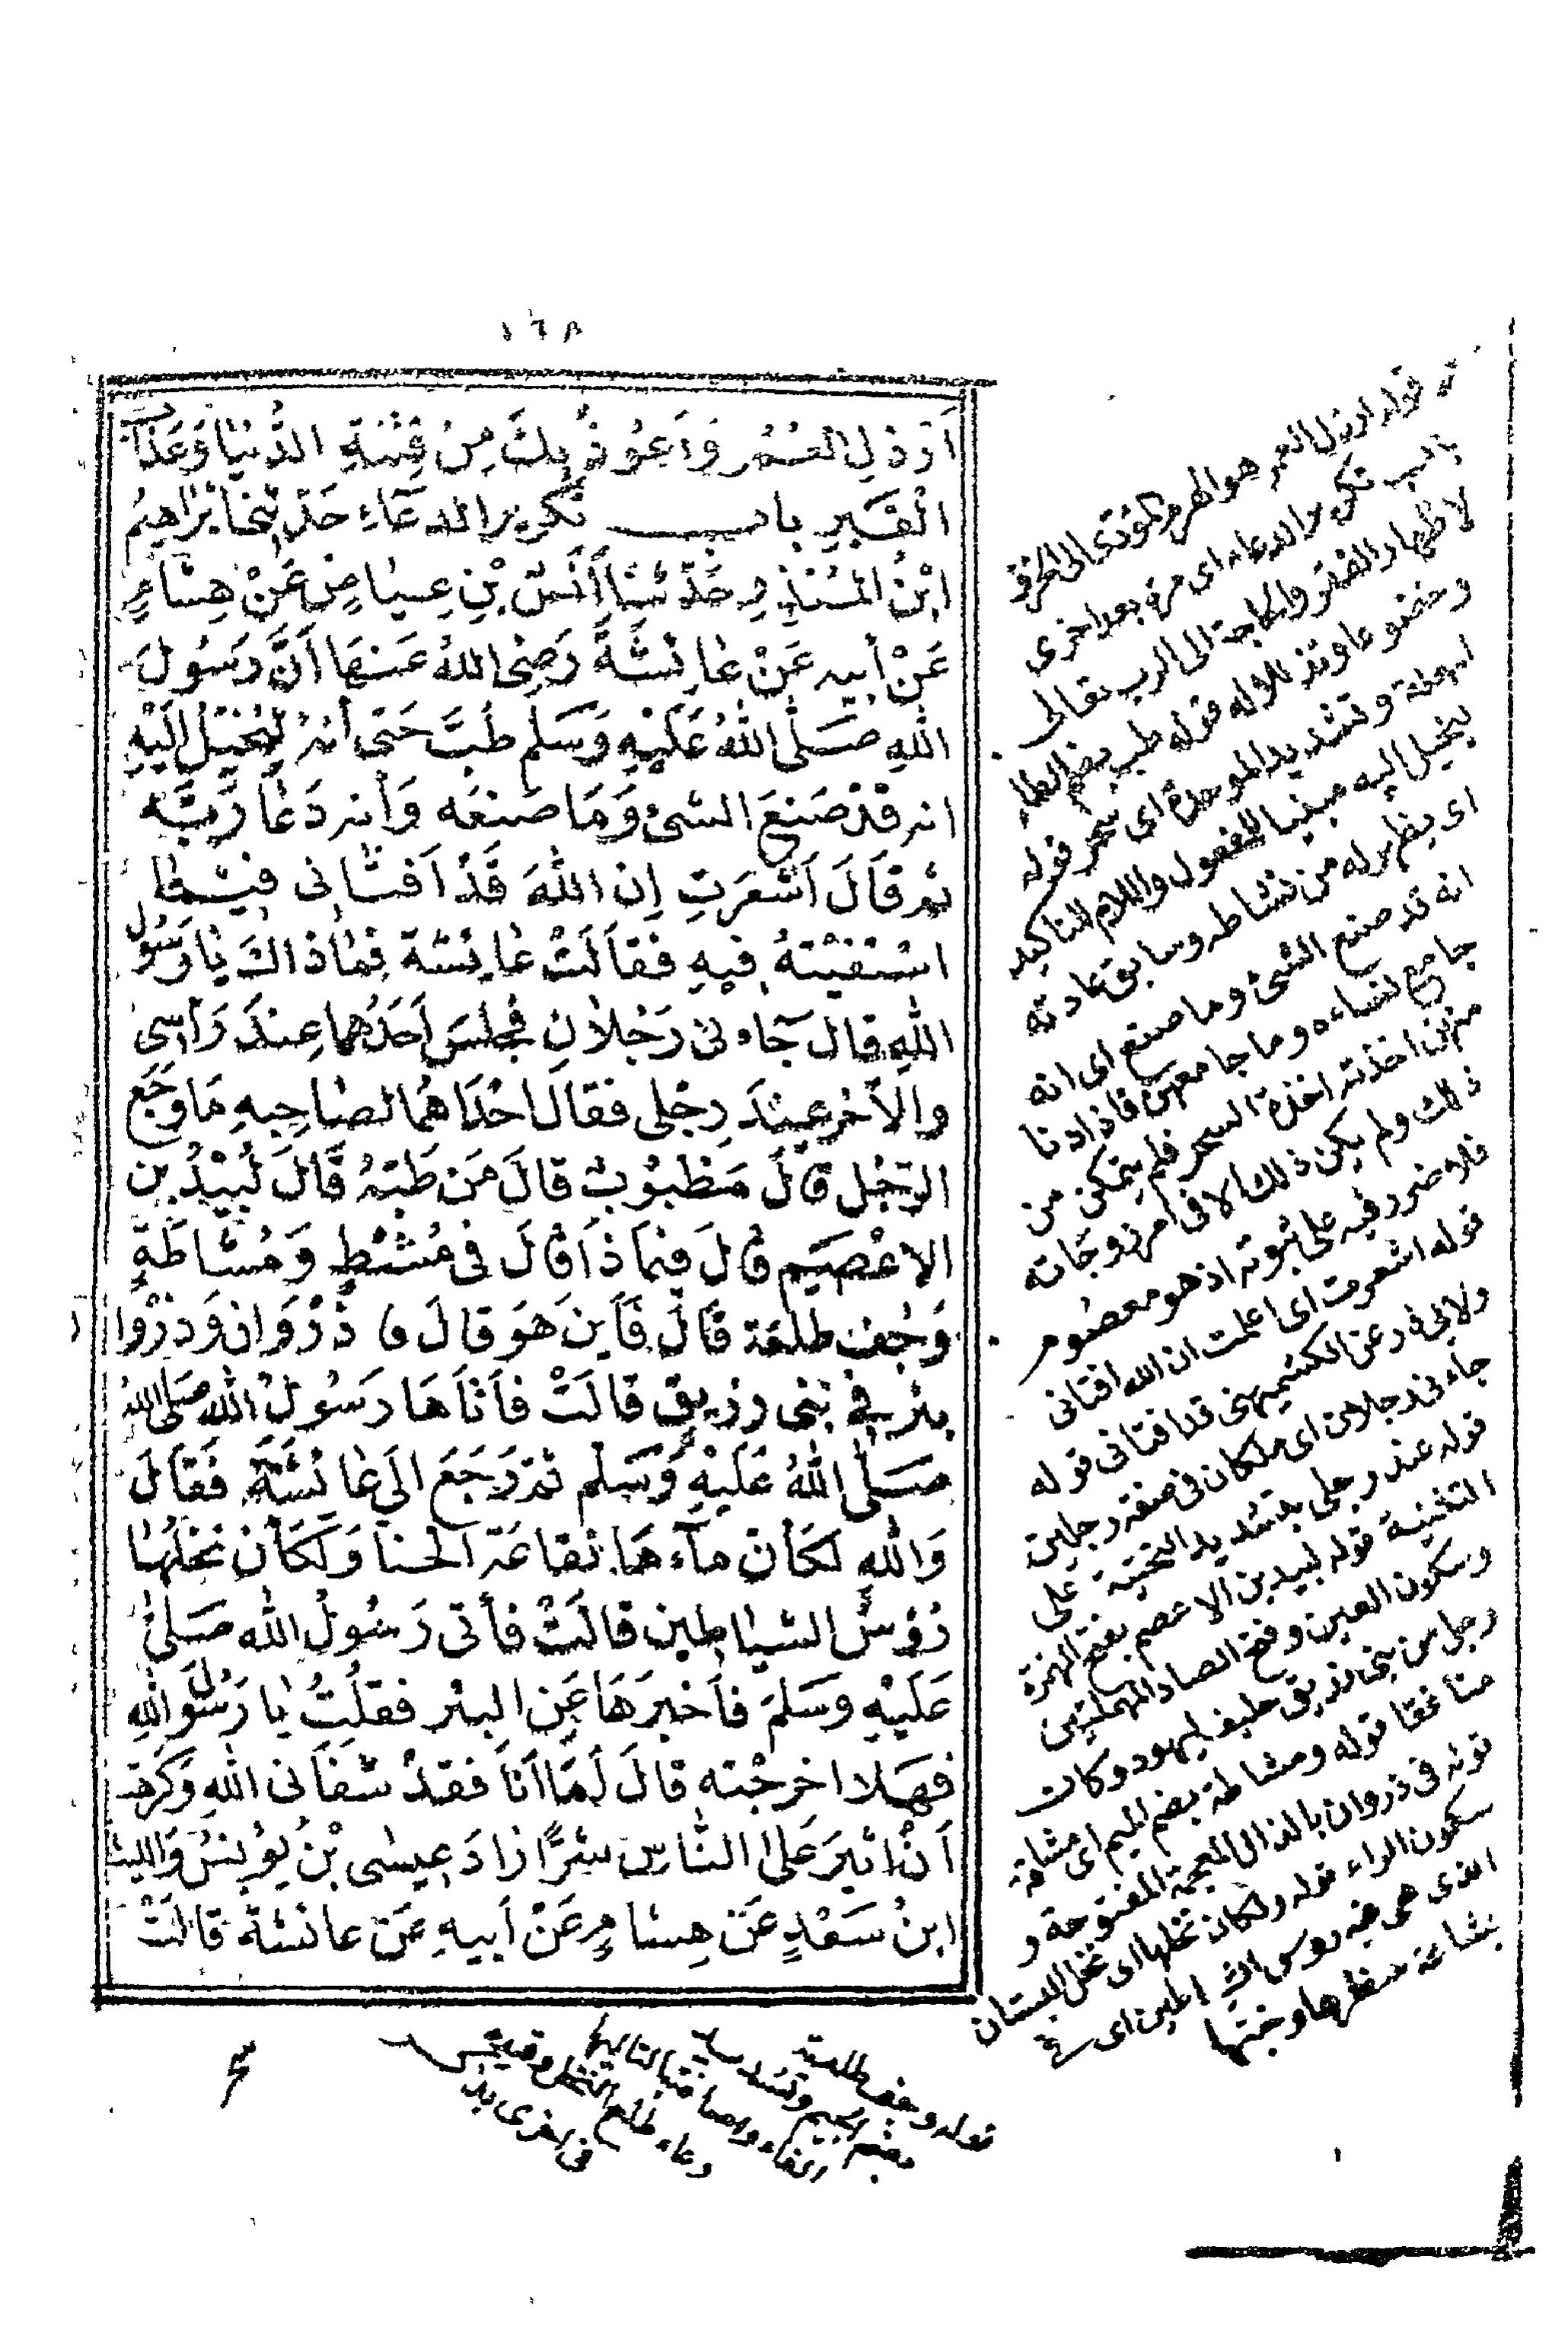 ١٦٨
اَرْذَلِ العُمُرِ وَاَعُوذُ بِكَ مِنْ فِتْنَةِ الدُّنْيَا وَعَذَابِ
الْقَبْرِ بَاب تَكْرِيرِ الدُعَآءِ حَدّثنَا اِبْرَاهِيمُ
ابْنُ المُنْذِرِ حَدّثنَا أَنَسُ بْنِ عِيَاضٍ عَنْ هِشَامٍ
عَنْ أبِيهِ عَنْ عَائِشَةَ رَضِىَ اللهُ عَنهَا أَنَّ رَسُولَ
اللهِ صَلَّى اللهُ عَلَيْهِ وَسَلم طُبَّ حَتى أنهُ لَيُخَيّلُ اِلَيْهِ
انه قَدْ صَنعَ الشىْءَ وَمَا صَنعَه وَأنه دَعَا رَبَّهُ
ثم قَالَ اَشَعَرتِ اِن اللهَ قَدْ اَفتَانى فِيْمَا
اسْتَفتَيْتهُ فِيهِ فقَالَتْ عَائِشَة فمَا ذاكَ يَا رَسُول
اللهِ قال جَآءنى رَجُلانِ فجلسَ اَحَدُهما عِندَ رَأسِى
والاَخر عِندَ رِجْلى فقالَ احْدَاهمَا لصَاحِبهِ مَا وَجَع
الرَّجُل قالَ مَطْبُوبٌ قالَ مَن طَبّهُ قَالَ لَبِيْدُ بن
الاعْصَم قالَ فِيمَا ذَا قالَ فى مُشْطٍ وَمُشَاطَةٍ
وَجُف طلعَة قَالَ فَاَينَ هَوَ قالَ فى ذَرْوَان وَذرْوَان
بِئرٌ فى بَنى رزيقٍ قالَتْ فأتَاهَا رَسُولُ اللهِ صَلى الله
صَلَّى اللهُ عَلَيْهِ وَسَلم ثمّ رَجَعَ الَى عَائشَة فَقَالَ
وَاللهِ لكَأنّ مآءهَا نقاعَة الحنا وَلكَأن نخلَهَا
رُؤُسُ الشيَاطِين قالَتْ فأتى رَسُولُ الله صَلىَّ
عَلَيْهِ وَسَلمَ فاَخبرَهَا عَن البئر فقلْتُ يا رَسُولَ اللهِ
فهَلا اخرجْته قالَ اَمَّا اَنَا فقدْ شفَانى اللهُ وَكَرهْت
اَنْ اثيرَ عَلىَ النَّاس شرًّا زَادَ عِيسٰى بْنُ يُونسُ وَاللّيث
ابنُ سَعْدٍ عَن هِشامٍ عَنْ اَبيهِ عَن عائشَة قالَتْ
قوله ارذل العمر هو الهرم المؤدى الى الخرف
باب تكرير الدعاء اى مرة بعد اخرى
لاظهار الفقر والحاجة الى الرب تعالى
وخضوعا وتذللا له قوله طب بضم الطاء
المهملة وتشديد الموحدة اى سحر قوله
يخيل اليه مبنيا للمفعول واللام للتاكيد
اى يظهر له من نشاطه وسابق عادته
انه قد صنع الشئ وما صنع اى انه
جامع نساءه وما جامعهن فاذا دنا
منهن اخذته اخذة السحر فلم يتمكن من
ذلك ولم يكن ذلك الا فى امر زوجاته
فلا ضرر فيه على نبوته اذ هو معصوم
قوله اشعرت اى اعلمت ان الله افتانى
ولابى ذر عن الكشميهنى قد افتانى قوله
جاءنى رجلان اى ملكان فى صفة رجلين
قوله عند رجلى بتشديد التحتية على
التثنية قوله لبيد بن الاعصم بفتح الهمزة
وسكون العين وفتح الصاد المهملتين
رجل من بنى زريق حليف ليهود وكان
منافقا قوله ومشاطة بضم الميم اى مشاقة
قوله فى ذروان بالذال المعجمة المفتوحة و
سكون الراء قوله ولكان نخلها اى نخل البستان
الذى هى فيه روس الشياطين اى فى
بشاعة منظرها وخبثها
قوله وجف طلعة
بضم الجيم وتشديد
الفاء
وعاء طلع النخل